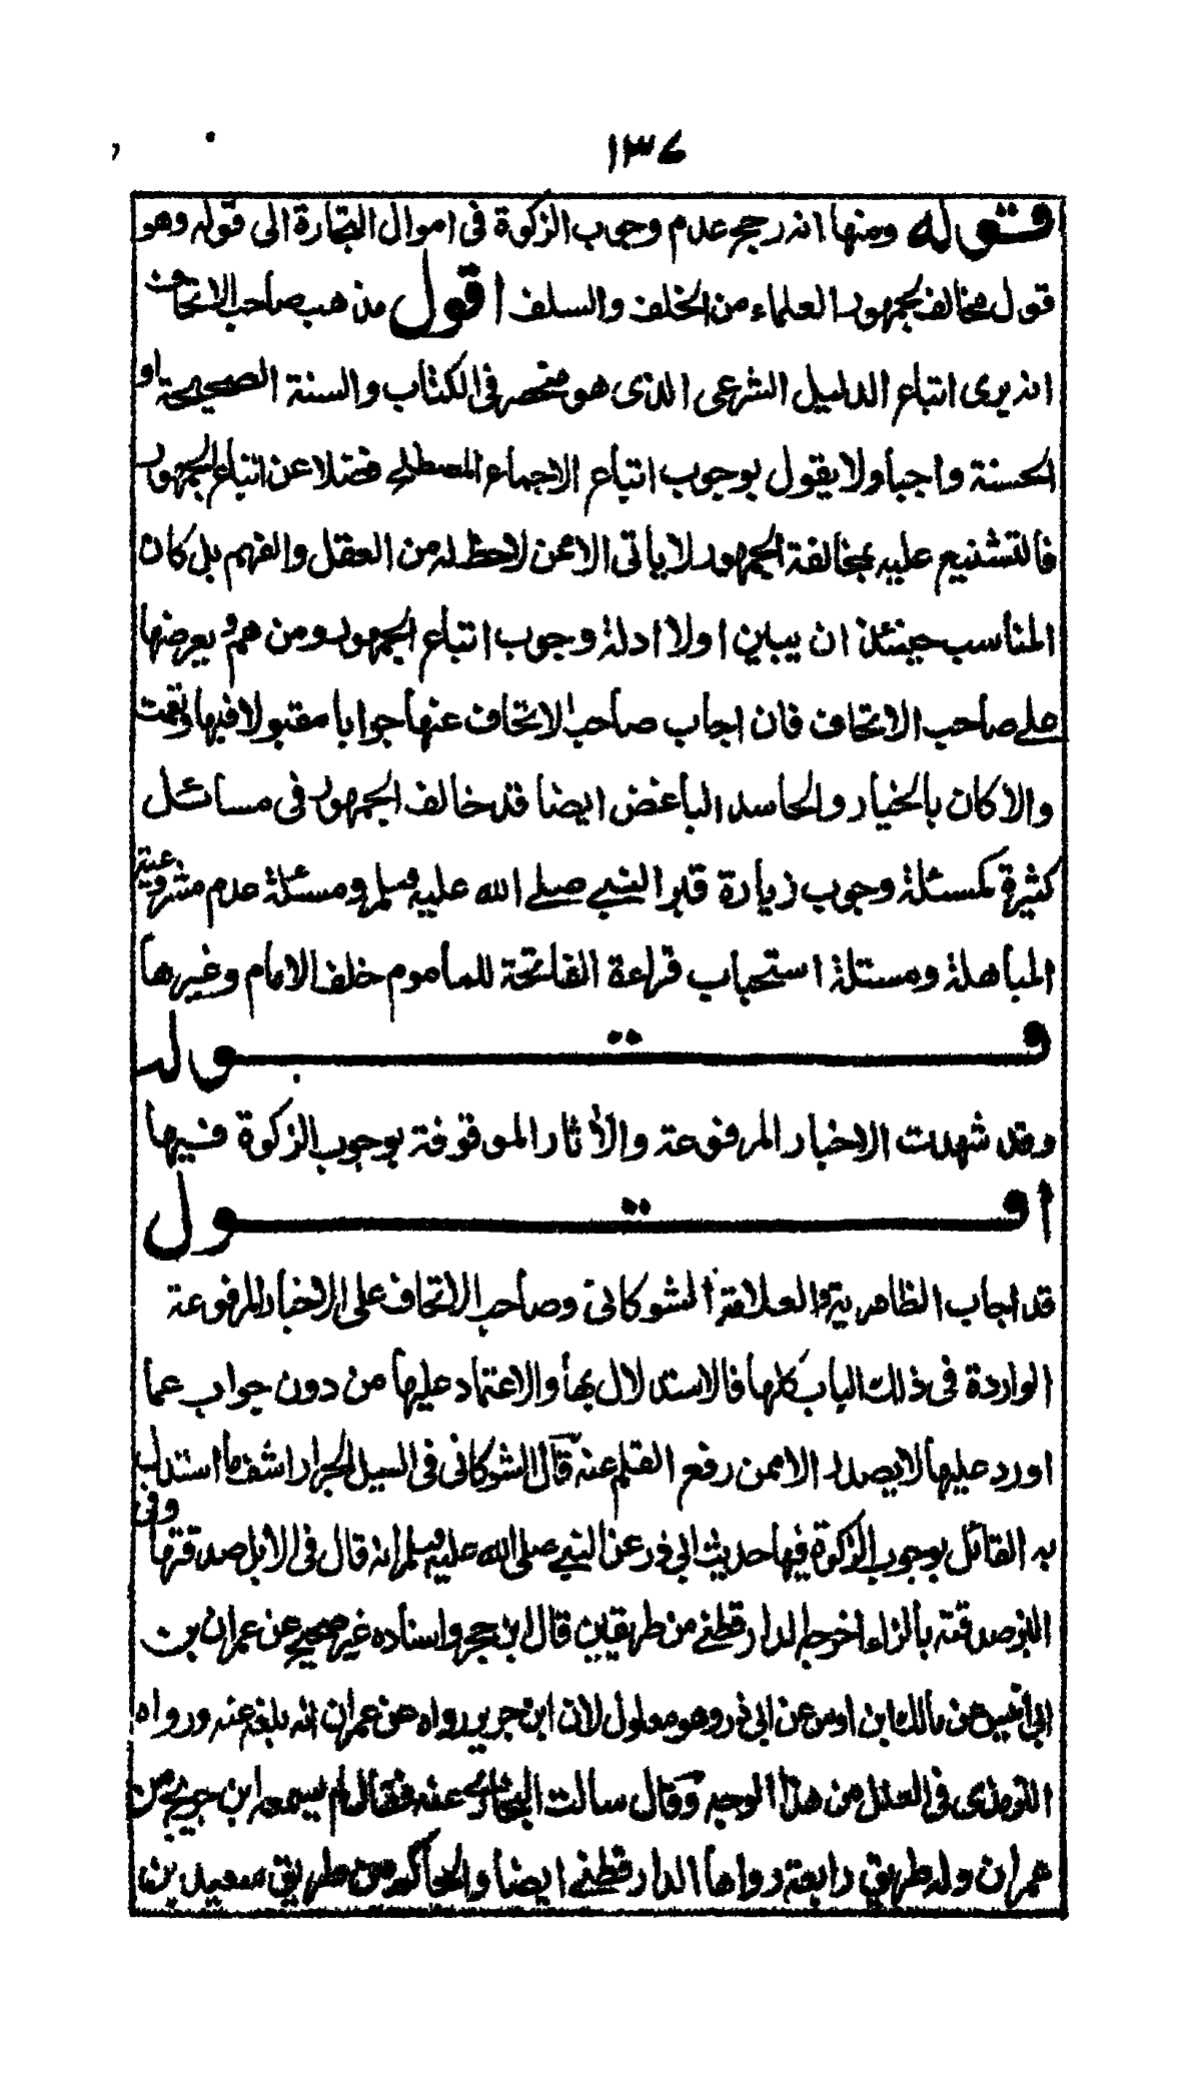 ١٣٤
قوله ومنها انه رجح عدم وجوب الزكوة فى اموال التجارة الى قوله وهو
قول مخالف لجمهور العلماء من الخلف والسلف اقول مذهب صاحب الاتحاف
انه يرى اتباع الدليل الشرعى الذى هو منحصر فى الكتاب والسنة الصحيحة او
الحسنة واجبا ولا يقول بوجوب اتباع الاجماع المصطلح فضلا عن اتباع الجمهور
فالتشنيع عليه بمخالفة الجمهور لا ياتى الا ممن لاحظ له من العقل والفهم بل كان
المناسب حينئذ ان يبين اولا ادلة وجوب اتباع الجمهور ومن هم و يعرضها
على صاحب الاتحاف فان اجاب صاحب الاتحاف عنها جوابا مقبولا فيها ونعمت
والا كان بالخيار والحاسد الباغض ايضا قد خالف الجمهور فى مسائل
كثيرة كمسئلة وجوب زيارة قبر النبى صلى الله عليه وسلم ومسئلة عدم مشروعية
المباهلة ومسئلة استحباب قراءة الفاتحة للماموم خلف الامام وغيرها
قوله
وقد شهدت الاخبار المرفوعة والأثار الموقوفة بوجوب الزكوة فيها
اقول
قد اجاب الظاهرية والعلامة الشوكانى وصاحب الاتحاف على الاخبار المرفوعة
الواردة فى ذلك الباب كلها فالاستدلال بها والاعتماد عليها من دون جواب عما
اورد عليها لا يصدر الا ممن رفع القلم عنه قال الشوكانى فى السيل الجرار اشف ما استدل
به القائل بوجوب الزكوة فيها حديث ابى ذر عن النبى صلى الله عليه وسلم انه قال فى الابل صدقتها وفى
البز صدقته بالزاء اخرجه الدارقطنى من طريقين قال ابن حجر واسناده غير صحيح عن عمران بن
ابى انيس عن مالك ابن اوس عن ابى ذر وهو معلول لان ابن جرير رواه عن عمران انه بلغه عنه ورواه
الترمذى فى العلل من هذا الوجه وقال سالت البخارى عنه فقال لم يسمعه ابن جريج من
عمران وله طريق رابعة رواها الدارقطنى ايضا والحاكم من طريق سعيد بن